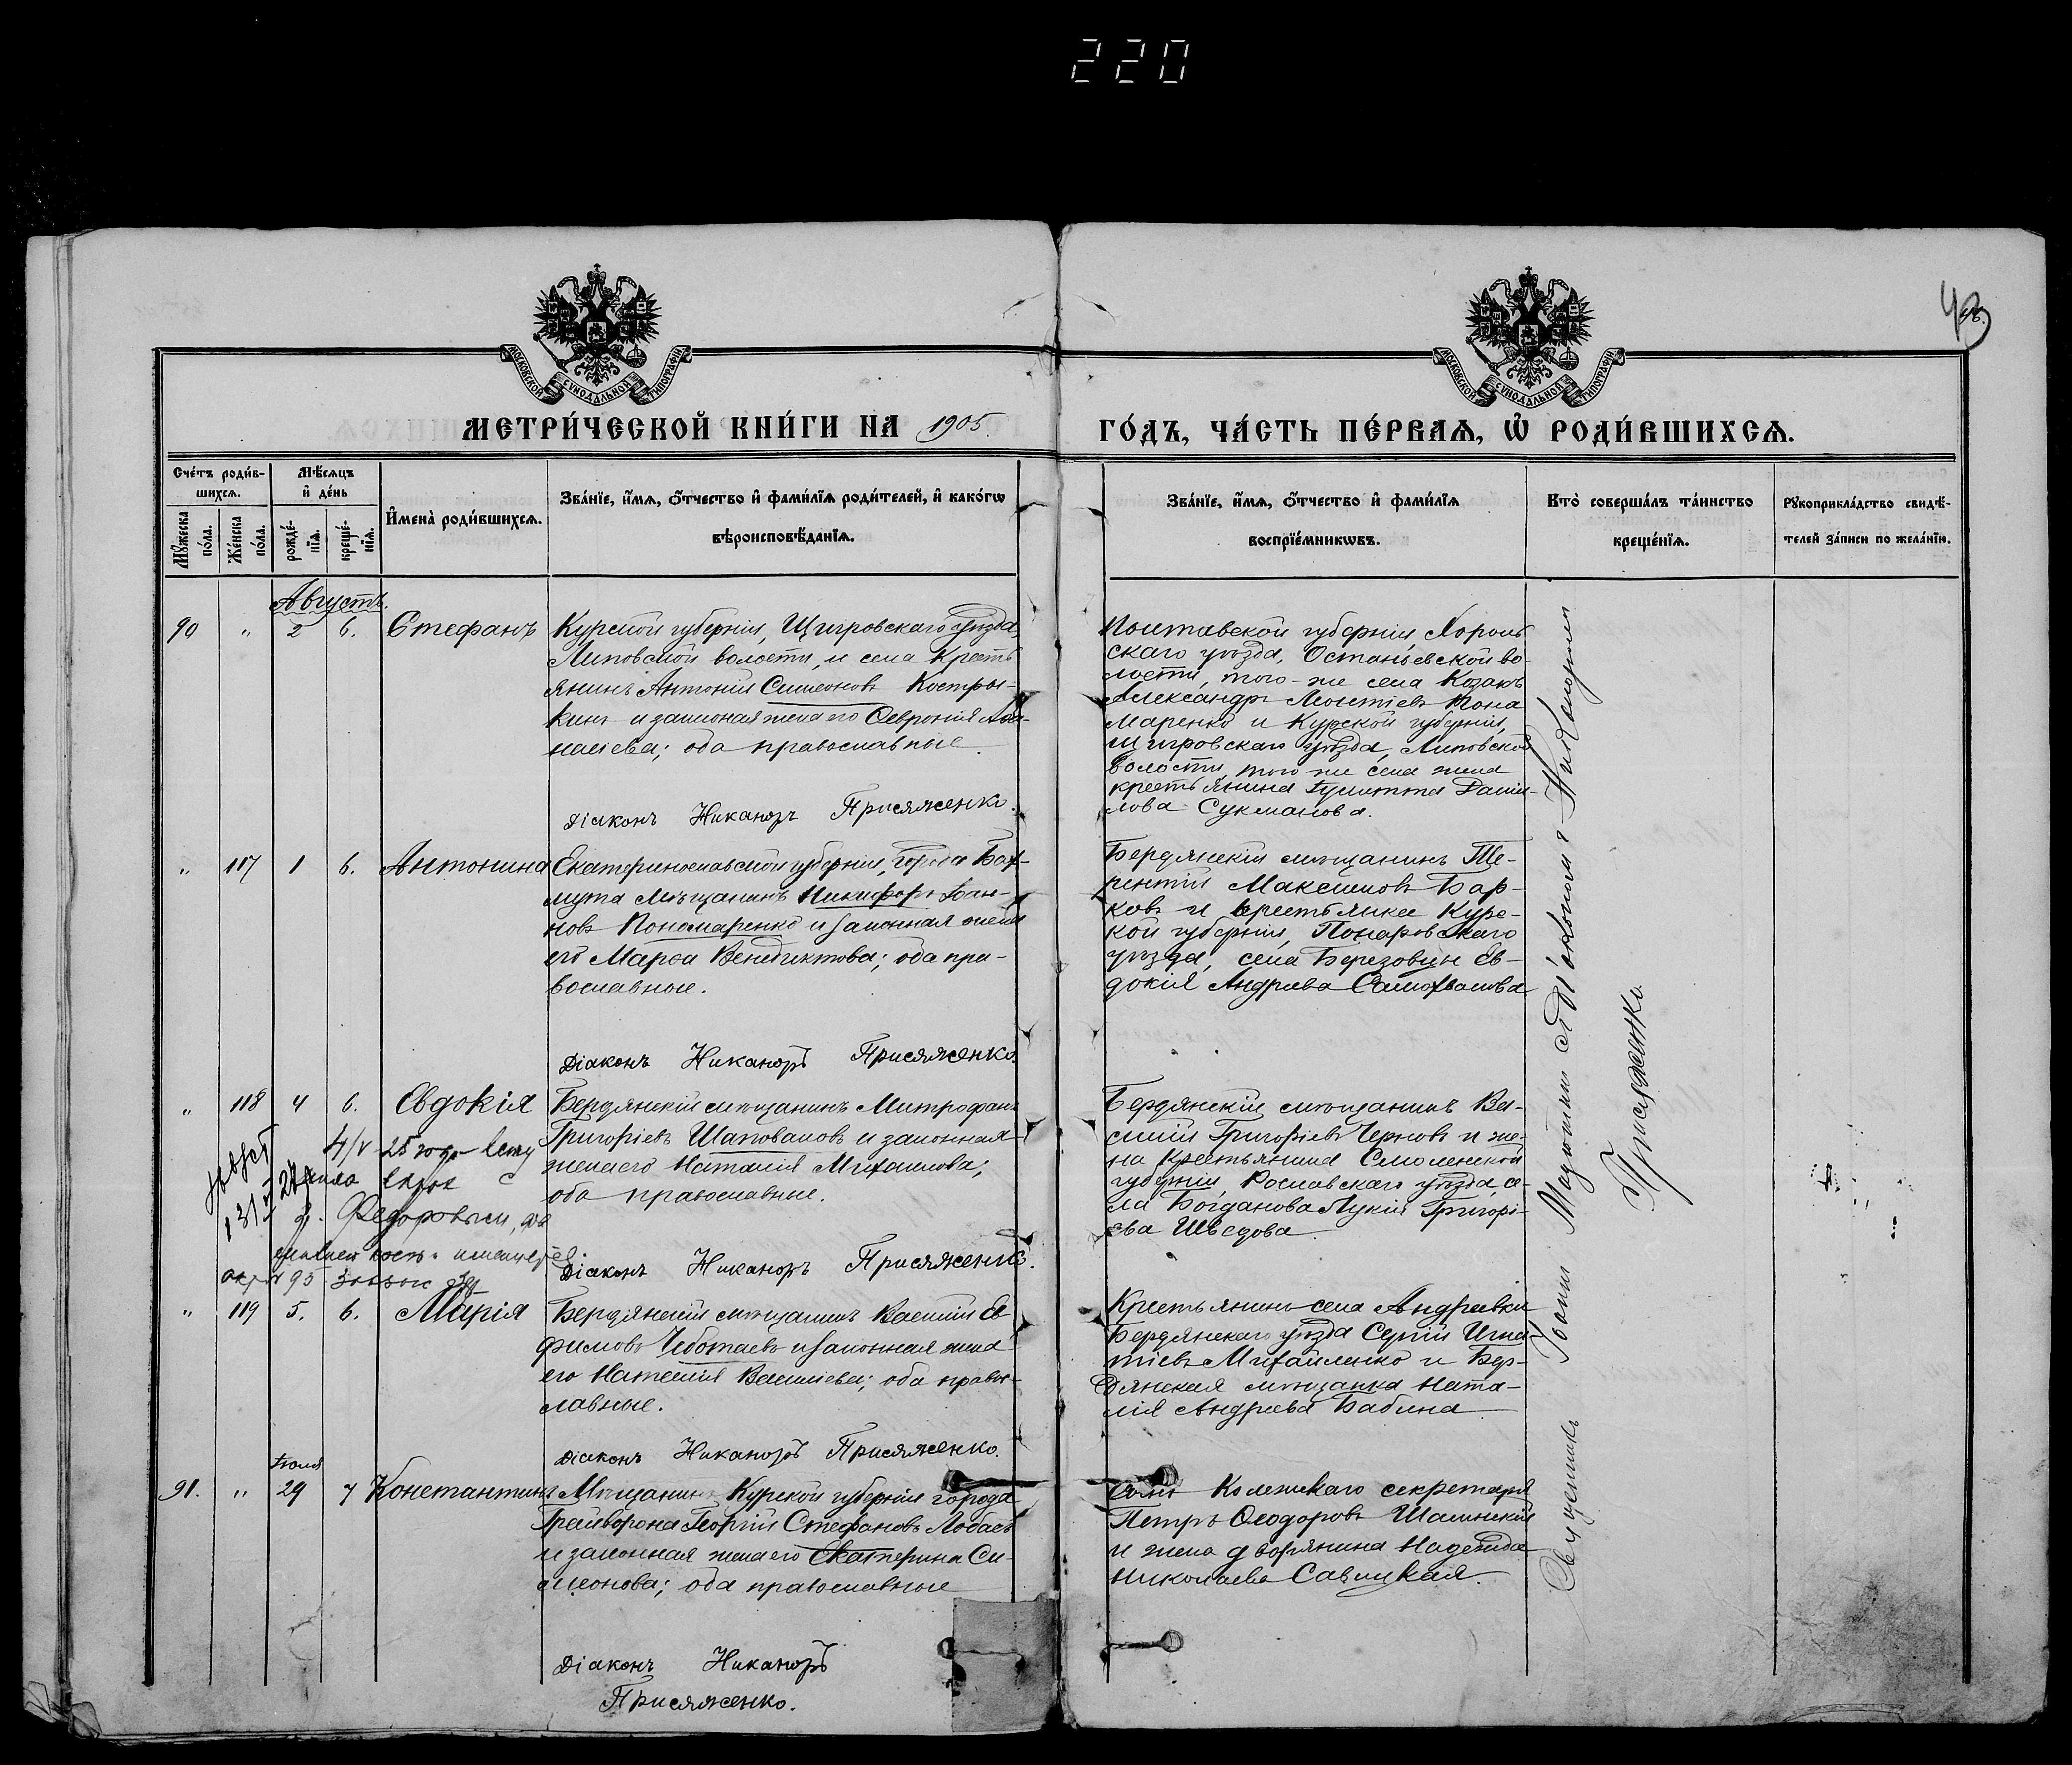 220
43
МОСКОВСКОЙ СѴНОДАЛЬНОЙ ТИПОГРАФІИ
МОСКОВСКОЙ СѴНОДАЛЬНОЙ ТИПОГРАФІИ
МЕТРИ́ЧЕСКОЙ КНИ́ГИ НА 1905.
ГО́ДЪ, ЧА́СТЬ ПЕ́РВАѦ, Ѡ҆ РОДИ́ВШИХСѦ.
Сче́тъ роди́в-
шихсѧ.
Мꙋ́жеска по́ла.
Же́нска по́ла.
Мѣ́сѧцъ
и҆ де́нь
рожде́-нїѧ.
креще́-нїѧ.
И҆мена̀ роди́вшихсѧ.
Зва́нїе, и҆́мѧ, ѻ҆́тчество и҆ фами́лїѧ роди́телей, и҆ како́гѡ
вѣроисповѣ́данїѧ.
Зва́нїе, и҆́мѧ, ѻ҆́тчество и҆ фами́лїѧ
воспрїе́мникѡвъ.
Кто̀ соверша́лъ та́инство
креще́нїѧ.
Рꙋкоприкла́дство свидѣ́-
телей за́писи по жела́нїю.
Августъ.
90 " 2 6. Стефанъ
Курской губерніи, Щигровскаго уѣзда,
Липовской волости, и села кресть
янинъ Антоній Симеоновъ Костры-
кинъ и законная жена его Ѳевронія Аѳа-
насіева; оба православные.
Діаконъ Никаноръ Присяженко.
Полтавской губерніи Хороль
скаго уѣзда, Остапьевской во-
лости, того-же села козакъ
Александръ Леонтіевъ Пона
маренко и Курской губерніи,
Щигровскаго уѣзда, Липовской
волости того же села жена
крестьянина Дани-
лова Сукманова.
" 117 1 6. Антонина
Екатеринославской губерніи, города Бах-
мута мѣщанинъ Никифоръ Іоан-
новъ Пономаренко и законная жена
его Марѳа Венедиктова; оба пра-
вославные.
Діаконъ Никаноръ Присяженко.
Бердянскій мѣщанинъ Те-
рентій Максимовъ Бар-
ковъ и крестьянка Курс-
кой губерніи,
уѣзда, села Березовцы Ев-
докія Андреева Самохвалова
" 118 4 6. Евдокія
Бердянскій мѣщанинъ Митрофанъ
Григоріевъ Шаповаловъ и законная
жена его Наталія Михаилова;
оба православные.
Діаконъ Никаноръ Присяженко.
Бердянскій мѣщанинъ Ва-
силій Григоріевъ Черновъ и же-
на крестьянина Смоленской
губерніи, Рославскаго уѣзда, се-
ла Богданова Лукія Григорі-
ева Шведова
4/V 25 года
Федоровым
" 119 5. 6. Марія
Бердянскій мѣщанинъ Василій Ев
фимовъ Чеботаевъ и законная жена
его Наталія Васильева; оба право-
славные.
Діаконъ Никаноръ Присяженко.
Крестьянинъ села Андреевки
Бердянскаго уѣзда Сергій Игна-
тіевъ Михайленко и Бер-
дянская мѣщанка Ната-
лія Андреева Бабина
Іюля
91. " 29 7 Константинъ
Мѣщанинъ Курской губерніи города
Грайворона Георгій Стефановъ Лобаевъ
и законная жена его Екатерина Си-
меонова; оба православные
Діаконъ Никаноръ
Присяженко.
Сынъ Колежскаго секретаря
Петръ Ѳеодоровъ Шалинскій
и жена дворянина Надежда
Николаева Савицкая.
Священникъ Іоаннъ Мадоткинъ съ діакономъ Никаноромъ
Присяженко.